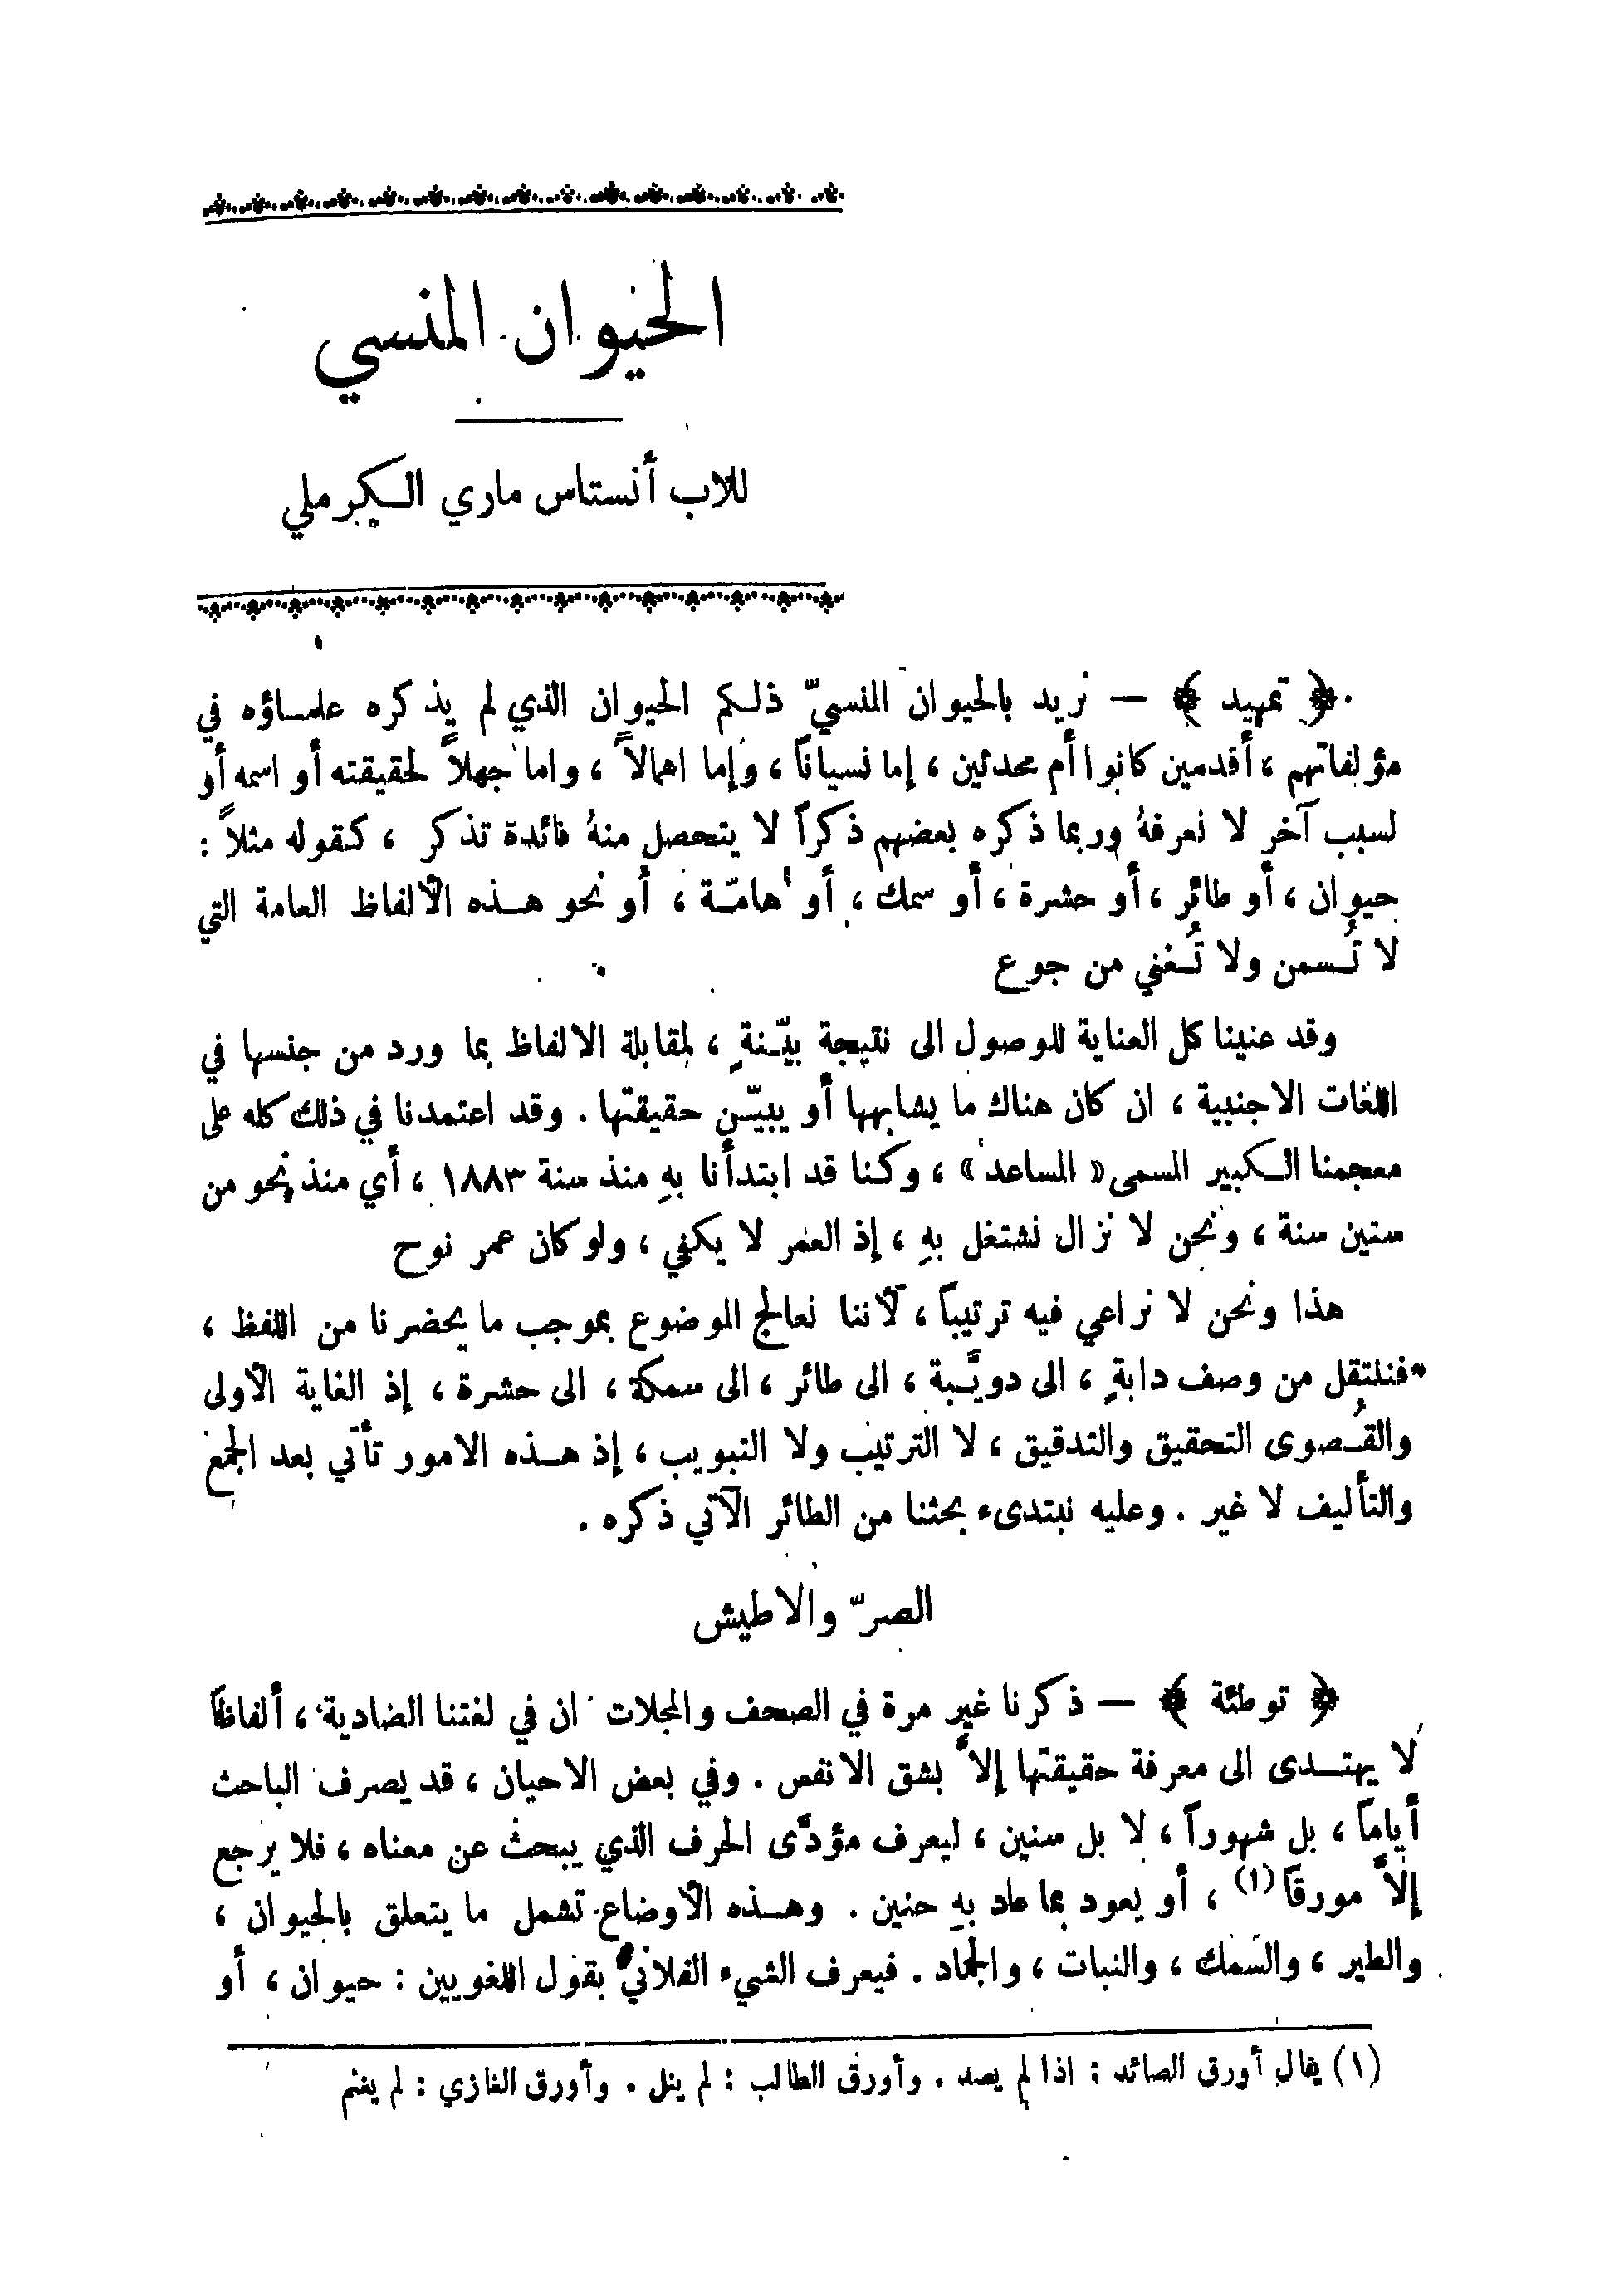 الحيوان المنسي
للاب أنستاس ماري الكرملي
﴿ تمهيد ﴾ — نريد بالحيوان المنسيّ ذلكم الحيوان الذي لم يذكره علماؤه في
مؤلفاتهم ، أقدمين كانوا أم محدثين ، إما نسياناً ، وإما اهمالاً ، واما جهلاً لحقيقته أو اسمه أو
لسبب آخر لا نعرفهُ وربما ذكره بعضهم ذكراً لا يتحصل منهُ فائدة تذكر ، كقوله مثلاً :
حيوان ، أو طائر ، أو حشرة ، أو سمك ، أو هامّة ، أو نحو هذه الألفاظ العامة التي
لا تُسمن ولا تُغني من جوع
وقد عنينا كل العناية للوصول الى نتيجة بيّنةٍ ، لمقابلة الالفاظ بما ورد من جنسها في
اللغات الاجنبية ، ان كان هناك ما يشابهها أو يبيّن حقيقتها . وقد اعتمدنا في ذلك كله على
معجمنا الكبير المسمى « المساعد » ، وكنا قد ابتدأنا بهِ منذ سنة ١٨٨٣ ، أي منذ نحو من
ستين سنة ، ونحن لا نزال نشتغل بهِ ، إذ العمر لا يكفي ، ولو كان عمر نوح
هذا ونحن لا نراعي فيه ترتيباً ، لأننا نعالج الموضوع بموجب ما يحضرنا من اللفظ ،
فننتقل من وصف دابةٍ ، الى دويّبة ، الى طائر ، الى سمكة ، الى حشرة ، إذ الغاية الأولى
والقُصوى التحقيق والتدقيق ، لا الترتيب ولا التبويب ، إذ هذه الامور تأتي بعد الجمع
والتأليف لا غير . وعليه نبتدىء بحثنا من الطائر الآتي ذكره .
الصرّ والاطيش
﴿ توطئة ﴾ — ذكرنا غير مرة في الصحف والمجلات ان في لغتنا الضادية ، ألفاظاً
لا يهتدى الى معرفة حقيقتها إلاَّ بشق الانفس . وفي بعض الاحيان ، قد يصرف الباحث
أياماً ، بل شهوراً ، لا بل سنين ، ليعرف مؤدَّى الحرف الذي يبحث عن معناه ، فلا يرجع
إلاَّ مورقاً (١) ، أو يعود بما عاد بهِ حنين . وهذه الأوضاع تشمل ما يتعلق بالحيوان ،
والطير ، والسمك ، والنبات ، والجماد . فيعرف الشيء الفلانيّ بقول اللغويين : حيوان ، أو
(١) يقال أورق الصائد : اذا لم يصد . وأورق الطالب : لم ينل . وأورق الغازي : لم يغنم